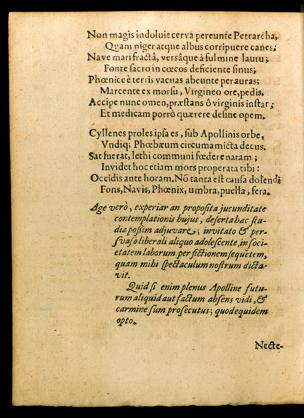 Non magis indoluit cerva pereunte Petrarcha,
Quam niger atque albus corripuere canes;
Nave mari fractâ, versâque à fulmine lauru;
Fonte sacro in cœcos deficiente sinus;
Phœnice è terris vacuas abeunte per auras;
Marcente ex morsu, Virgineo ore, pedis.
Accipe nunc omen, præstans ô virginis instar;
Et medicam porrò quærere desine opem.
Cyllenes proles ipsa es, sub Apollinis orbe,
Vndiq; Phœbæum circumamicta decus.
Sat fuerat, lethi communi fœdere naram;
Invidet hoc etiam mors properata tibi:
Occidis ante horam. Nō tanta est causa dolendi
Fons, Navis, Phœnix, umbra, puella, fera.
Age verò, experiar an proposita jucunditate
contemplationis hujus, deserta hac sta-
dia possim adjuvare; invitato & per-
svaso liberali aliquo adolescente, in soci-
etatem laborum perfictionem sequetem,
quam mihi spectaculum nostrum dicta-
vit.
Quid si enim plenus Apolline futu-
rum aliquid aut factum absens vidi, &
carmine sum prosecutus; quod equidem
opto.
Necte-